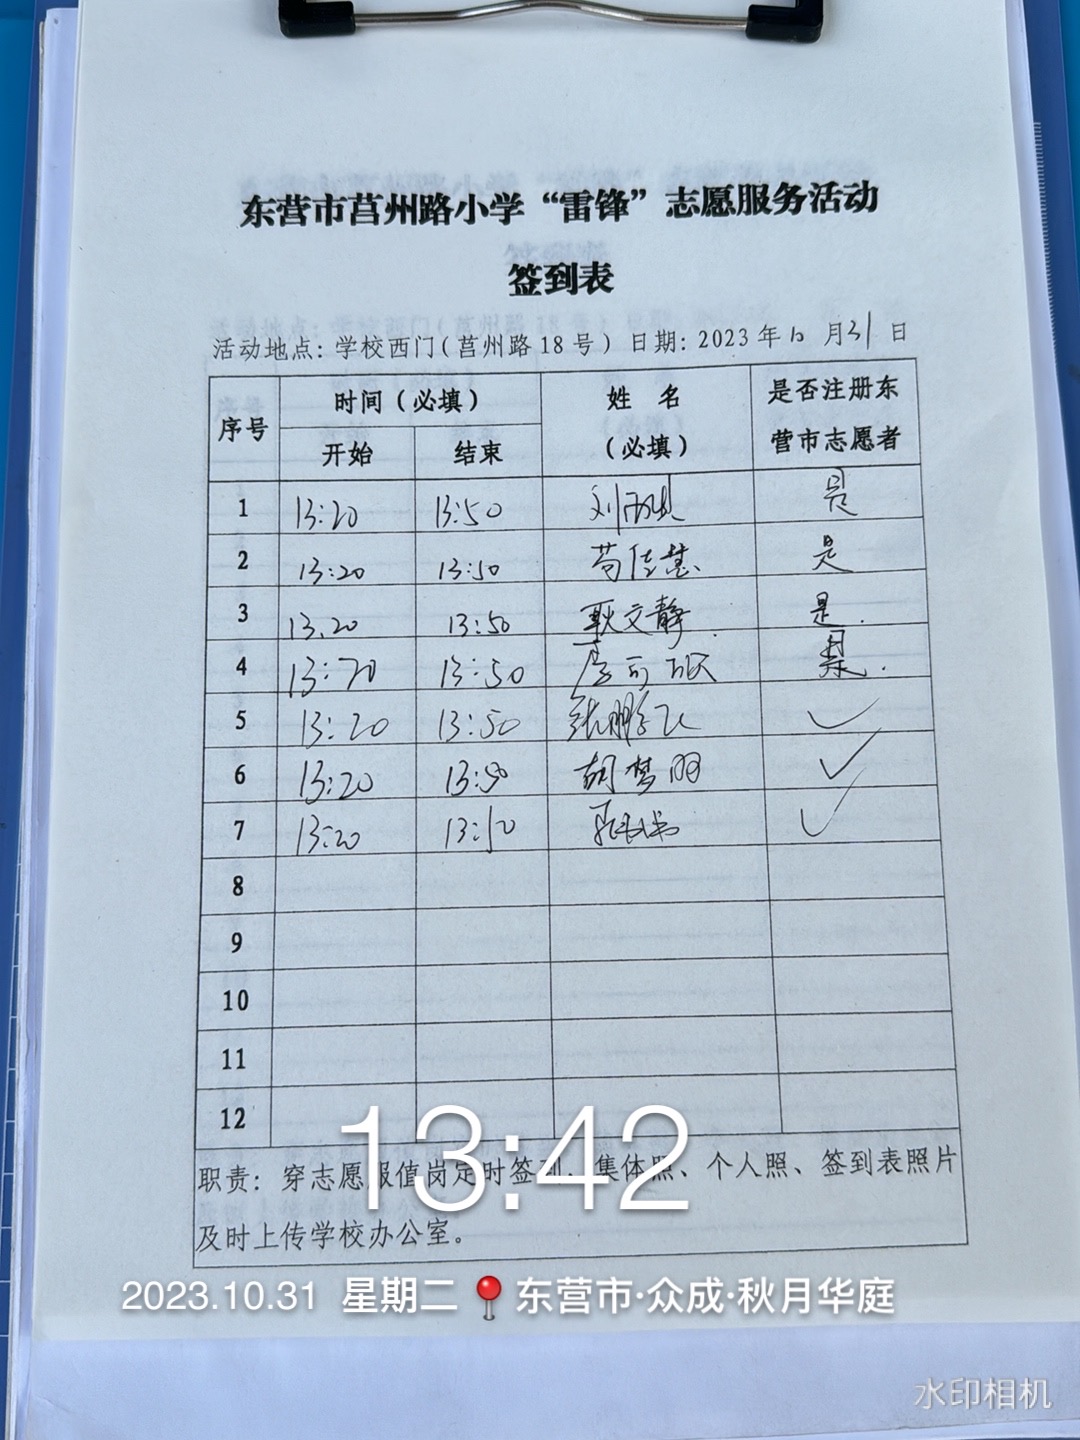 东营市莒州路小学“雷锋”志愿服务活动
签到表
活动地点：学校西门（莒州路18号）日期：2023年10月31日
序号 时间（必填） 姓 名（必填） 是否注册东营市志愿者
开始 结束
1 13:20 13:50 刘 是
2 13:20 13:50 苟佳慧 是
3 13.20 13:50 耿文静 是.
4 13:20 13:50 是.
5 13:20 13:50 张鹏飞 ✓
6 13:20 13:50 胡梦 ✓
7 13:20 13:50 ✓
8
9
10
11
12
职责：穿志愿服值岗定时签到、集体照、个人照、签到表照片
及时上传学校办公室。
13:42
2023.10.31 星期二 东营市·众成·秋月华庭
水印相机